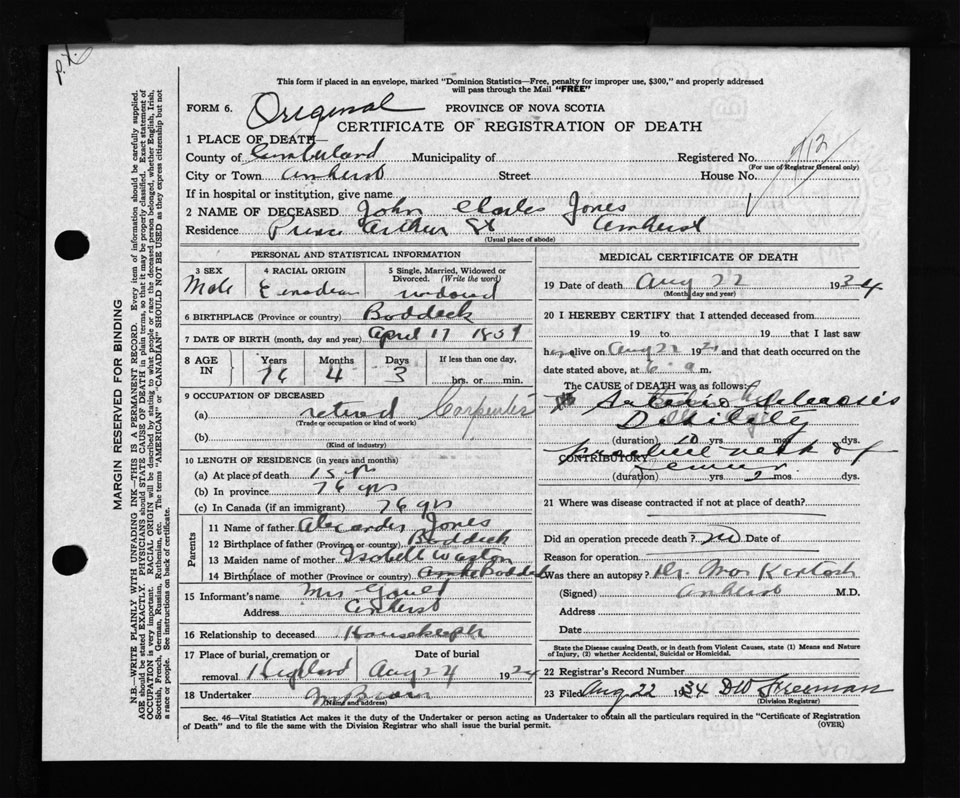 p.x.
This form if placed in an envelope, marked "Dominion Statistics—Free, penalty for improper use, $300," and properly addressed
will pass through the Mail "FREE"
FORM 6. Original PROVINCE OF NOVA SCOTIA
CERTIFICATE OF REGISTRATION OF DEATH
1 PLACE OF DEATH—
County of Cumberland Municipality of Registered No. 712
(For use of Registrar General only)
City or Town Amherst Street House No.
If in hospital or institution, give name
2 NAME OF DECEASED John Charles Jones
Residence Prince Arthur St Amherst
(Usual place of abode)
PERSONAL AND STATISTICAL INFORMATION
3 SEX 4 RACIAL ORIGIN 5 Single, Married, Widowed or
Divorced. (Write the word)
Male Canadian widowed
6 BIRTHPLACE (Province or country) Boddeck
7 DATE OF BIRTH (month, day and year) April 17
8 AGE IN Years Months Days If less than one day,
76 4 3 hrs. or min.
9 OCCUPATION OF DECEASED
(a) retired Carpenter
(Trade or occupation or kind of work)
(b)
(Kind of industry)
10 LENGTH OF RESIDENCE (in years and months)
(a) At place of death 15 yrs
(b) In province 76 yrs
(c) In Canada (if an immigrant) 76 yrs
Parents
11 Name of father Alexander Jones
12 Birthplace of father (Province or country) Boddeck
13 Maiden name of mother
14 Birthplace of mother (Province or country) Boddeck
15 Informant's name Mrs
Address Amherst
16 Relationship to deceased Housekeeper
17 Place of burial, cremation or Date of burial
removal Aug 24 1934
18 Undertaker
(Name and address)
MEDICAL CERTIFICATE OF DEATH
19 Date of death Aug 22 1934
(Month, day and year)
20 I HEREBY CERTIFY that I attended deceased from
19 to 19 that I last saw
h alive on Aug 22 19 and that death occurred on the
date stated above, at 6 a m.
The CAUSE OF DEATH was as follows:
Arterio Sclerosis
Debility
(duration) 10 yrs mos dys.
CONTRIBUTORY neck of
Femur
(duration) yrs 2 mos dys.
21 Where was disease contracted if not at place of death?
Did an operation precede death? no Date of
Reason for operation
Was there an autopsy? Dr.
(Signed) Amherst M.D.
Address
Date
State the Disease causing Death, or in death from Violent Causes, state (1) Means and Nature
of Injury, (2) whether Accidental, Suicidal or Homicidal.
22 Registrar's Record Number
23 Filed Aug 22 1934 DW Freeman
(Division Registrar)
Sec. 46—Vital Statistics Act makes it the duty of the Undertaker or person acting as Undertaker to obtain all the particulars required in the "Certificate of Registration
of Death" and to file the same with the Division Registrar who shall issue the burial permit. (OVER)
MARGIN RESERVED FOR BINDING
N.B.—WRITE PLAINLY WITH UNFADING INK—THIS IS A PERMANENT RECORD. Every item of information should be carefully supplied.
AGE should be stated EXACTLY. PHYSICIANS should STATE CAUSE OF DEATH in plain terms, so that it may be properly classified. Exact statement of
OCCUPATION is very important. RACIAL ORIGIN will be described by stating to what people or race the deceased person belonged, whether English, Irish,
Scottish, French, German, Russian, Ruthenian, etc. The terms "AMERICAN" or "CANADIAN" SHOULD NOT BE USED as they express citizenship but not
a race or people. See instructions on back of certificate.